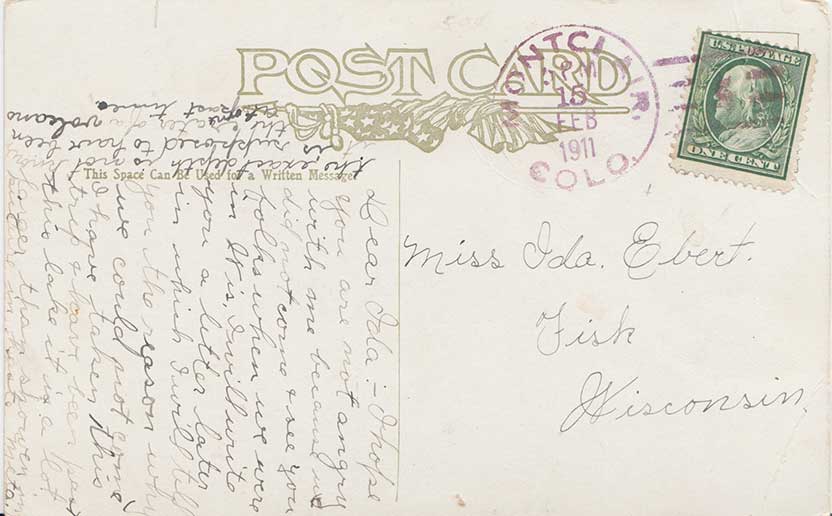 POST CARD
MONTCLAIR.
PM
15
FEB
1911
COLO.
U.S. POSTAGE
ONE CENT
This Space Can Be Used for a Written Message
Miss Ida. Ebert.
Fisk
Wisconsin.
Dear Ida:- I hope
you are not angry
with me because we
did not come & see you
folks when we were
in Wis, I will write
you a letter later
in which I will tell
you the reason why
we could not come
I have taken this
trip & have been past
this lake it is a lot
larger than shown on
here
Meta.
its exact depth is not
is supposed to have been
the crater of a volcano
past times